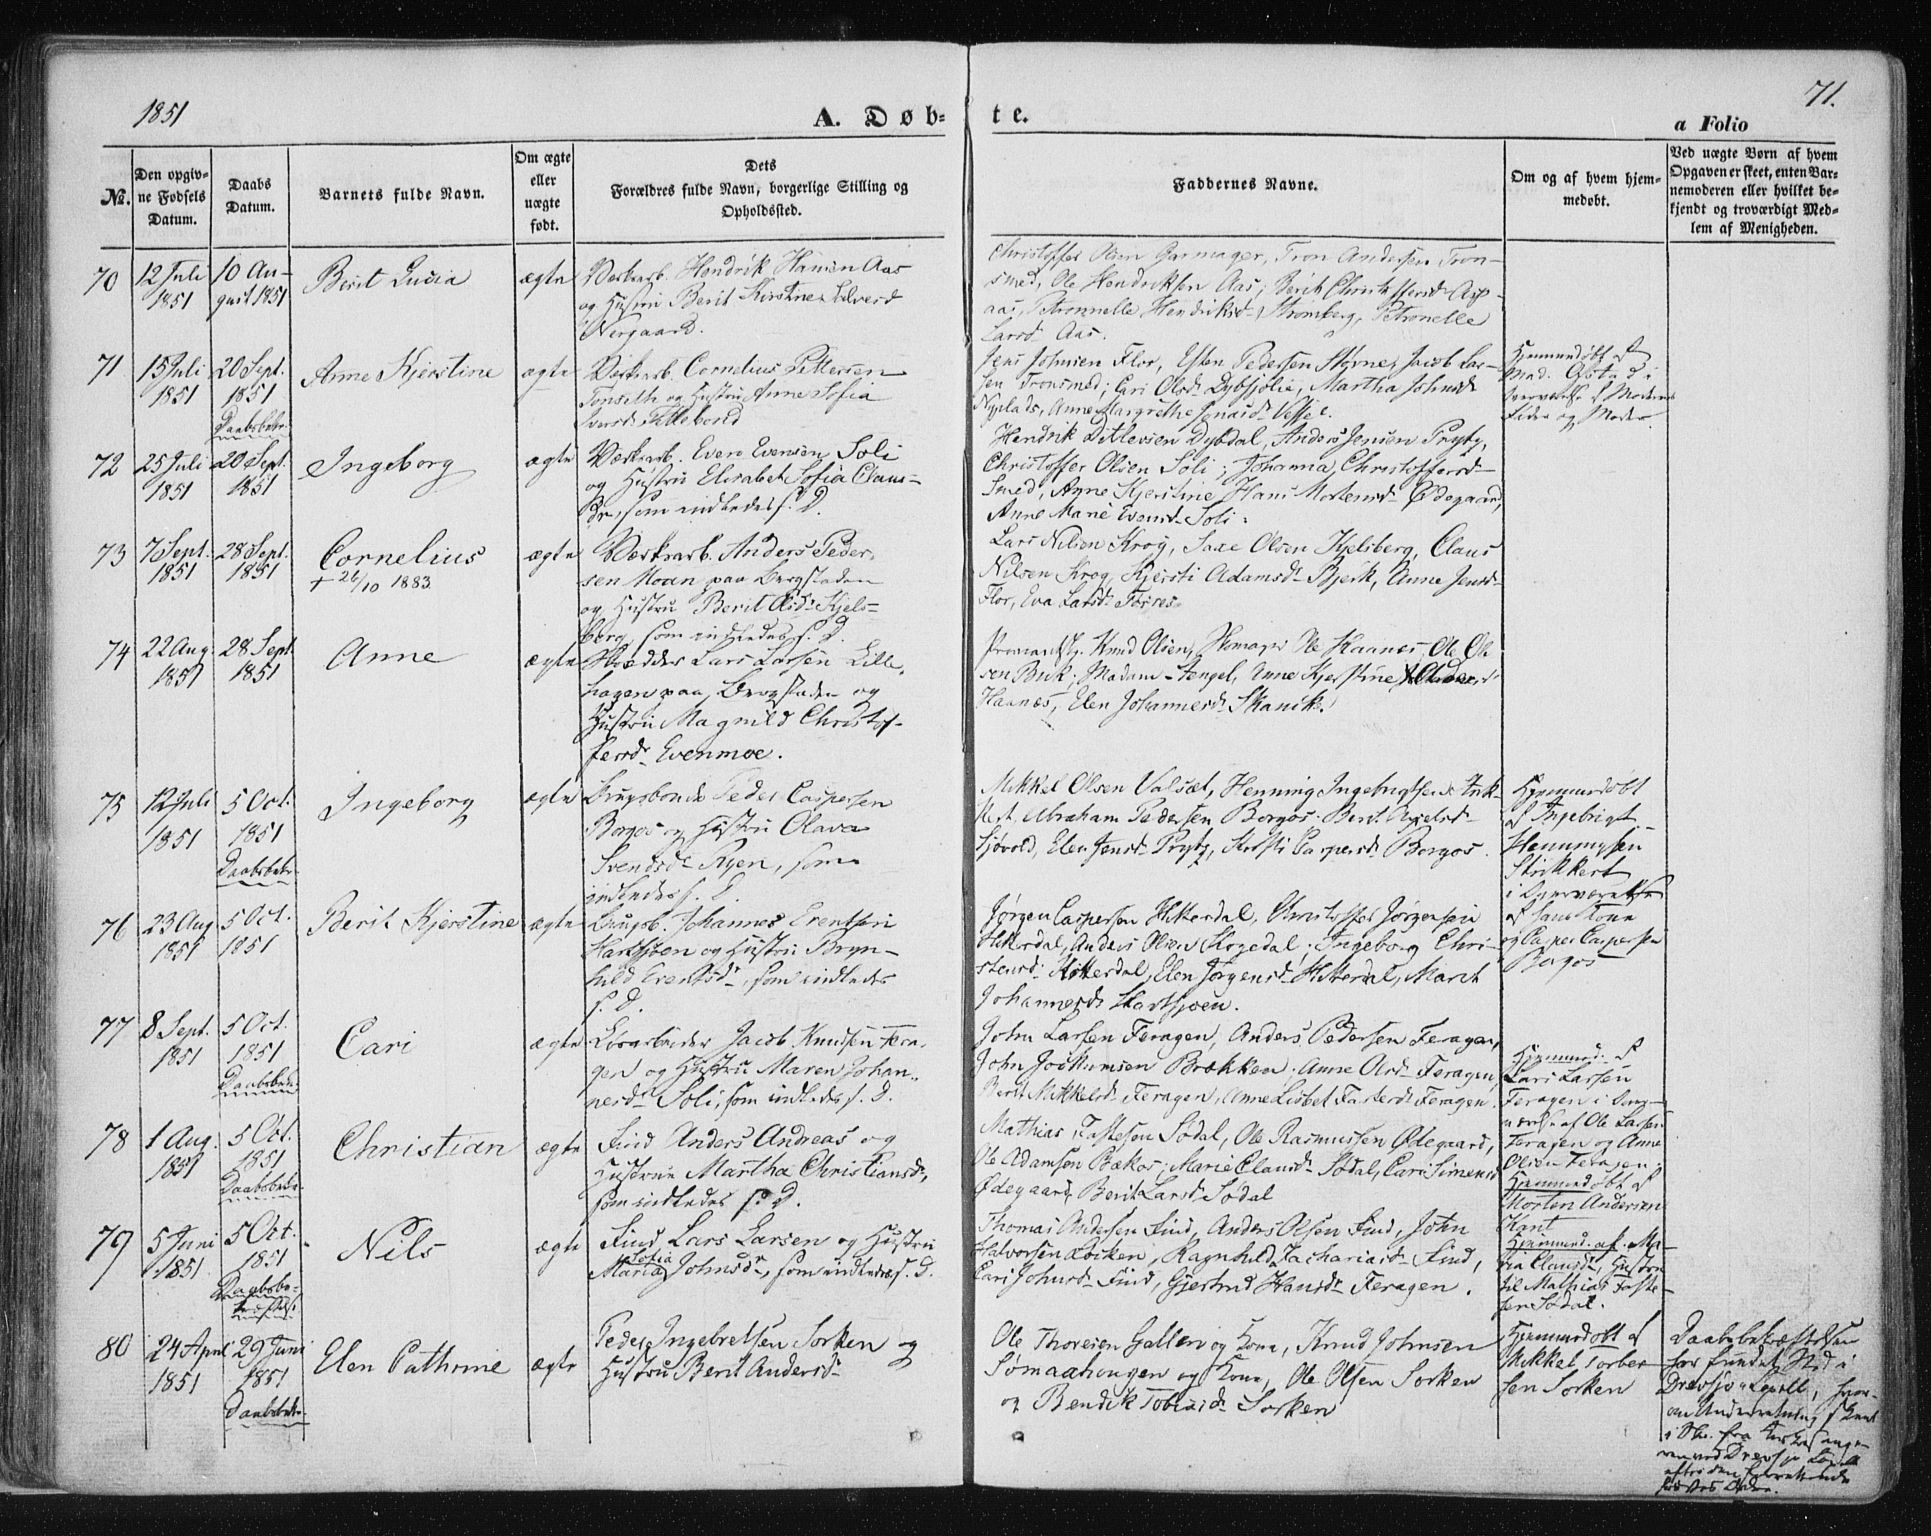 1851
A. Døb-
te.
71.
a Folio
No.
Den opgiv-
ne Fødsels
Datum.
Daabs
Datum.
Barnets fulde Navn.
Om ægte
eller
uægte
født.
Dets
Forældres fulde Navn, borgerlige Stilling og
Opholdssted.
Faddernes Navne.
Om og af hvem hjem-
medøbt.
Ved uægte Børn af hvem
Opgaven er skeet, enten Bar-
nemoderen eller hvilket be-
kjendt og troværdigt Med-
lem af Menigheden.
70
12 Juli
1851
10 Au-
gust 1851
Berit Lucia
ægte
Værkarb. Hendrik Hansen Aas
og Hustru Berit Kirstine
Nergaard.
Christoffer Olsen Garmager, Tron Andersen Tron-
smed, Ole Hendriksen Aas; Berit Christoffersd. Asp-
aas, Petronelle Hendriksd. Strømberg, Petronelle
Larsd. Aas.
71
15 Juli
1851
20 Sept.
1851
Daabsbekr.
Anne Kjerstine
ægte
Værkarb. Cornelius Pettersen
Tonseth og Hustru Anne Sofia
Jens Johnsen Flor, Esten Pedersen, Jacob Lar-
sen Tronsmed; Cari Olsd. Dybsjølie, Martha Johnsd.
Nyplads, Anne Margrethe
Hjemmedøbt af
Mad. i
Overværelse af Moderens
Fader og Moder.
72
25 Juli
1851
20 Sept.
1851
Ingeborg
ægte
Værkarb. Even Evensen Soli
og Hustru Elisabet Sofia Claus-
dr, som indledes s. D.
Hendrik Ditlevsen Dybdal, Anders Jensen Prytz,
Christoffer Olsen Soli; Johanna Christoffersd.
Smed, Anne Kjerstine Hans Mortensd. Ødegaard,
Anne Marie Evensd. Soli.
73
7 Sept.
1851
28 Sept.
1851
Cornelius
† 26/10 1883
ægte
Værkarb. Anders Peder-
sen Moen paa Bergstaden
og Hustru Berit Olsd. Kjels-
berg, som indledes s. D.
Lars Nilsen Krog, Saxe Olsen Kjelsberg, Claus
Nilsen Krog, Kjersti Adamsd. Bjerk, Anne Jensd.
Flor, Eva Larsd. Torres.
74
22 Aug.
1851
28 Sept.
1851
Anne
ægte
Skrædder Lars Larsen Lille-
hagen paa Bergstaden og
Hustru Magnild Christof-
fersd. Evenmoe.
Knud Olsen, Ole Haanes, Ole Ol-
sen Buk; Madam Stengel, Anne Kjerstine
Haanes, Elen Johannesd. Skanke.
75
12 Juli
1851
5 Oct.
1851
Daabsbekr.
Ingeborg
ægte
Brugsbonde Peder Caspersen
Borgos og Hustru Olava
Svendsd. Ryen, som
indledes s. D.
Mikkel Olsen Valsæt, Henning Ingebrigtsen Strik-
kert, Abraham Pedersen Borgos; Berit
Sjøvold, Elen Jensd. Prytz, Kirsti Caspersd. Borgos.
Hjemmedøbt
af Ingebrigt
Henningsen
Strikkert
i Overværelse
af hans Kone
og Casper Caspersen
Borgos
76
23 Aug
1851
5 Oct.
1851
Berit Kjerstine
ægte
Brugsb. Johannes Erentsen
Hartsjøen og Hustru Bryn-
hild Erentsd., som indledes
s. D.
Jørgen Caspersen Hitterdal, Christoffer Jørgensen
Hitterdal, Anders Olsen Korgedal; Ingeborg Chri-
stensd. Hitterdal, Elen Jørgensd. Hitterdal, Marit
Johannesd. Hartsjøen.
77
8 Sept.
1851
5 Oct.
1851
Daabsbekr.
Cari
ægte
Løsarbeider Jacob Knudsen Fera-
gen og Hustru Maren Johan-
nesd. Soli, som indledes s. D.
John Larsen Feragen, Anders Pedersen Feragen,
John Jochumsen Brækken; Anne Olsd. Feragen,
Berit Mikkelsd. Feragen, Anne Lisbet Fastersd. Feragen.
Hjemmed. af
Lars Larsen
Feragen i Over-
værelse af Ole Larsen
Feragen og Anne
Olsen Feragen
78
1 Aug.
1851
5 Oct.
1851
Daabsbekr.
Christian
ægte
Find Anders Andreas og
Hustrue Martha Christiansd.,
som indledes s. D.
Mathias Fastesen Sødal, Ole Rasmussen Ødegaard,
Ole Adamsen Bækos; Marie Clausd. Sødal, Cari Simensd.
Ødegaard, Berit Larsd. Sødal
Hjemmedøbt af
Morten Andersen
Kant
79
5 Juni
1851
5 Oct.
1851
Daabsbe-
kræftelse.
Nils
ægte
Find Lars Larsen og Hustru
Maria Sofia Johnsdr., som indledes s. D.
Thomas Andersen Find, Anders Olsen Find, John
Halvorsen Løkken, Ragnhild Zachariasd. Find,
Cari Johnsd. Find, Gjertrud Hansd. Feragen.
Hjemmed. af Ma-
ria Clausdr., Hustru
til Mathias Faste-
sen Sødal.
80
24 April
1851
29 Juni
1851
Daabsbekr.
Elen Cathrine
ægte
Peder Ingebretsen Sorken og
Hustru Berit Andersd.
Ole Thoresen Gallen og Kone, Knud Johnsen
Sømaahougen og Kone, Ole Olsen Sorken
og Bendik Tobiasd. Sorken
Hjemmedøbt af
Mikkel Torber-
sen Sorken
Daabsbekræftelsen
har fundet Sted i
Drevsjø Capell, hvor-
om Underretning